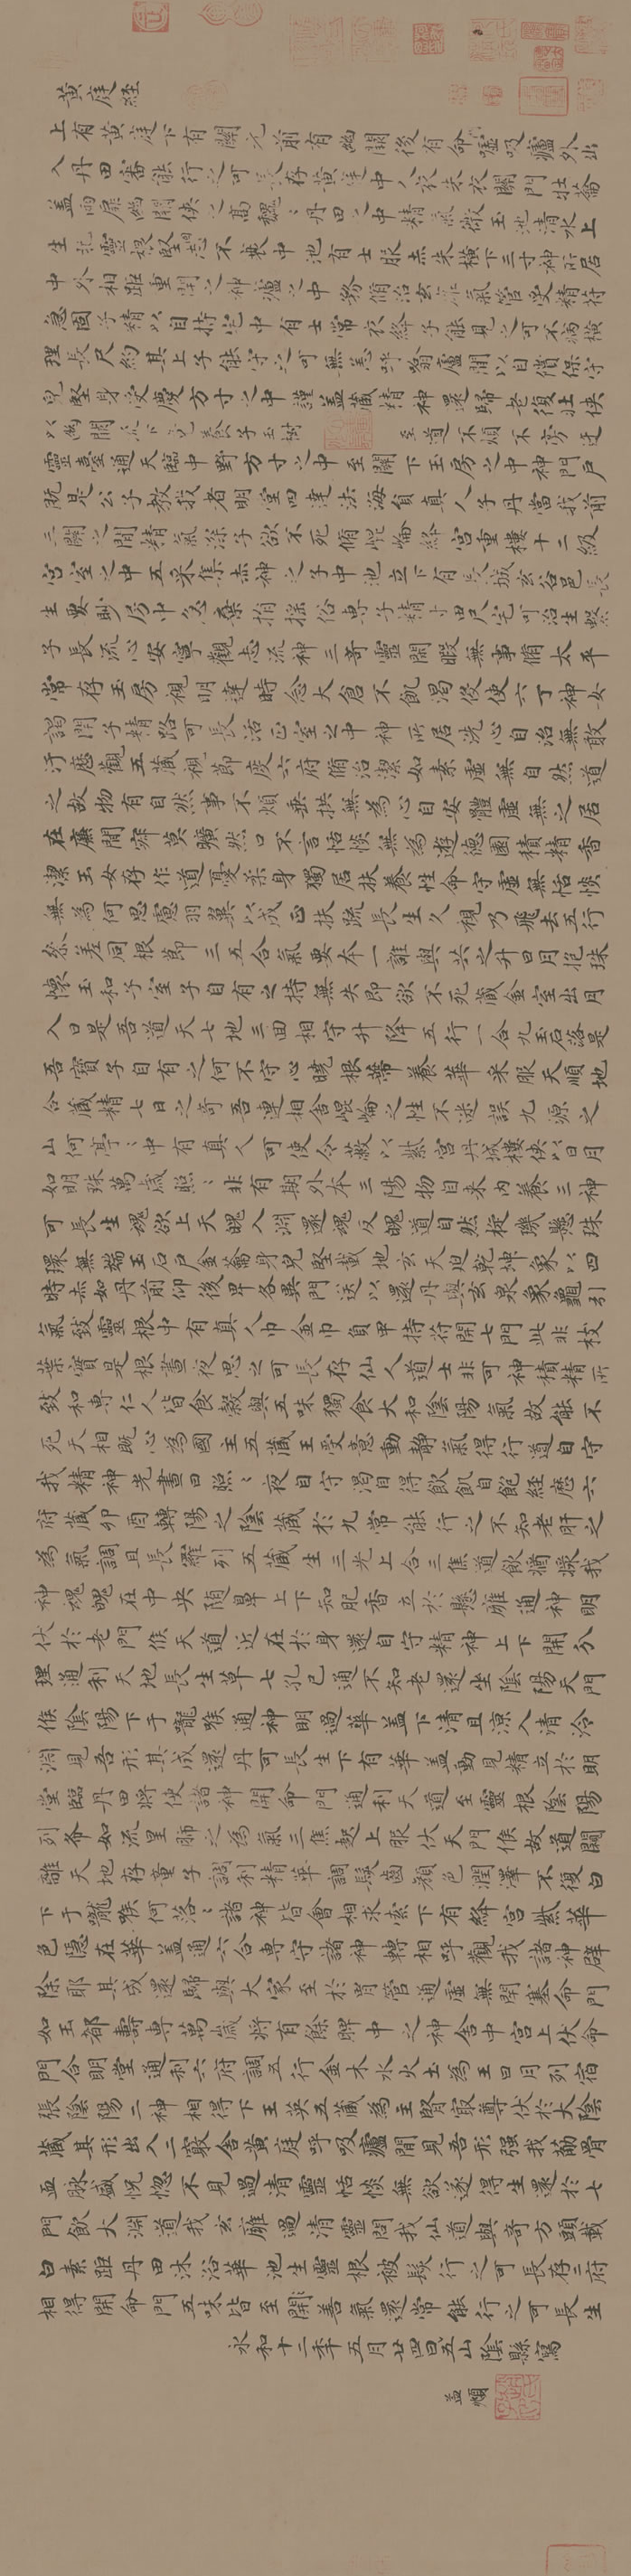 黄庭経
上有黄庭下有關元前有幽關後有命嘘吸廬外出
入丹田審能行之可長存黄庭中人衣朱衣關門壮蘥
盖兩扉幽關俠之高巍〻丹田之中精氣微玉池清水上
生肥靈根堅志不衰中池有士服赤朱橫下三寸神所居
中外相距重閉之神廬之中務脩治玄廱氣管受精符
急固子精以自持宅中有士常衣絳子能見之可不病橫
理長尺約其上子能守之可無恙呼噏廬間以自償保守
皃堅身受慶方寸之中謹盖藏精神還歸老復壮俠
以幽闕流下竟養子玉樹 至道不煩不旁迕
靈臺通天臨中野方寸之中至關下玉房之中神門戶
既是公子教我者明堂四達法海負真人子丹當我前
三關之間精氣深子欲不死脩崐崘絳宮重樓十二級
宮室之中五采集赤神之子中池立下有長城玄谷邑長
生要眇房中急棄捐搖俗専子精寸田尺宅可治生繫
子長流心安寧觀志流神三奇靈閑暇無事脩太平
常存玉房視明達時念大倉不飢渴役使六丁神女
謁閉子精路可長活正室之中神所居洗心自治無敢
汙歷觀五藏視節度六府脩治潔如素虛無自然道
之故物有自然事不煩垂拱無為心自安體虛無之居
在廉間寂莫曠然口不言恬惔無為遊德園積精香
潔玉女存作道憂柔身獨居扶養性命守虛無恬惔
無為何思慮羽翼以成正扶疏長生久視乃飛去五行
參差同根節三五合氣要本一誰與共之升日月抱珠
懷玉和子室子自有之持無失即欲不死藏金室出月
入日是吾道天七地三回相守升降五行一合九玉石落是
吾寶子自有之何不守心曉根蔕養華采服天順地
合藏精七日之奇吾連相舍崐崘之性不迷誤九源之
山何亭〻中有真人可使令蔽以紫宮丹城樓俠以日月
如明珠萬歲照〻非有期外本三陽物自来内養三神
可長生魂欲上天魄入淵還魂反魄道自然旋璣懸珠
環無端玉石戶金蘥身皃堅載地玄天迫乾坤象以四
時赤如丹前仰後卑各異門送以還丹與玄泉象龜引
氣致靈根中有真人巾金巾負甲持符開七門此非枝
葉實是根晝夜思之可長存仙人道士非可神積精所
致和専仁人皆食穀與五味獨食大和陰陽氣故能不
死天相既心為國主五藏王受意動静氣得行道自守
我精神光晝日照〻夜自守渴自得飲飢自飽經歷六
府藏卯酉轉陽之陰藏於九常能行之不知老肝之
為氣調且長羅列五藏生三光上合三焦道飲醬漿我
神魂魄在中央随鼻上下知肥香立於懸雍通神明
伏於老門候天道近在於身還自守精神上下開分
理通利天地長生草七孔已通不知老還坐陰陽天門
候陰陽下于嚨喉通神明過華盖下清且涼入清泠
淵見吾形其成還丹可長生下有華盖動見精立於明
堂臨丹田將使諸神開命門通利天道至靈根陰陽
列布如流星肺之為氣三焦起上服伏天門候故道闚
離天地存童子調利精華調髮齒顏色潤澤不復白
下于嚨喉何落〻諸神皆會相求索下有絳宮紫華
色隱在華盖通六合専守諸神轉相呼觀我諸神辟
除耶其成還歸與大家至於胃管通虛無閉塞命門
如玉都壽専萬歲將有餘脾中之神舍中宮上伏命
門合明堂通利六府調五行金木水火土為王日月列宿
張陰陽二神相得下玉英五藏為主腎㝡尊伏於大陰
藏其形出入二竅舍黄庭呼吸廬間見吾形强我萠骨
血脉盛怳惚不見過清靈恬惔無欲遂得生還於七
門飲大淵道我玄雍過清靈問我仙道與奇方頭載
白素距丹田沐浴華池生靈根被髮行之可長存二府
相得開命門五味皆至開善氣還常能行之可長生
永和十二年五月廿四日五山陰縣寫
孟頫